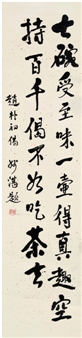 七碗受至味一壶得真趣空
持百千偈不如吃茶去
趙朴初偈 🈳題